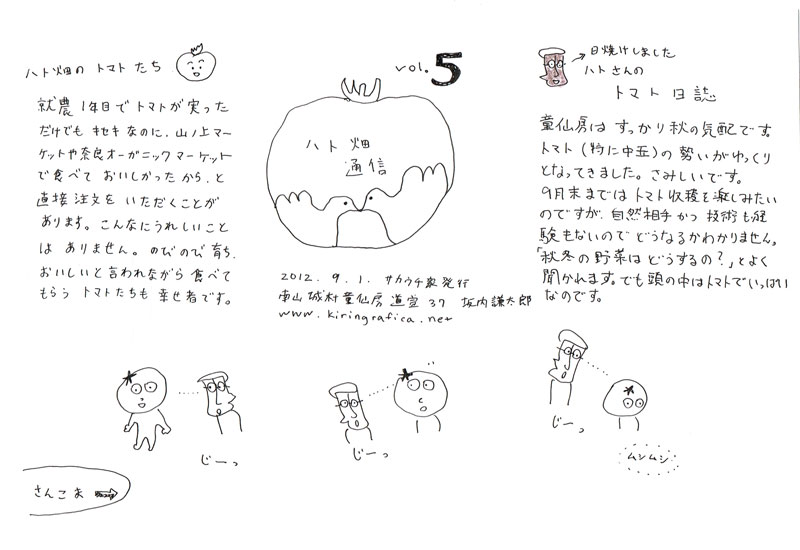 ハト畑の トマト たち
就農 1年目で トマトが 実った
だけでも キセキ なのに、山ノ上マー
ケットや奈良オーガニックマーケット
で食べて おいしかったから、と
直接注文を いただくことが
あります。こんなにうれしいこと
は ありません。のびのび育ち、
おいしいと言われながら 食べて
もらう トマトたちも 幸せ者です。
vol.5
ハト 畑
通信
2012. 9. 1. サカウチ家発行
南山城村童仙房 道堂 37 坂内謙太郎
www.kiringrafica.net
日焼けしました
ハトさんの
トマト日誌
童仙房は すっかり秋の気配です。
トマト (特に中玉)の 勢いがゆっくり
となってきました。さみしいです。
9月末まではトマト収穫を楽しみたい
のですが、自然相手かつ 技術も経
験もないので どうなるかわかりません。
「秋冬の野菜はどうするの?」とよく
聞かれます。でも頭の中はトマトでいっぱい
なのです。
じーっ
じーっ
じーっ
ムシムシ
さんこま